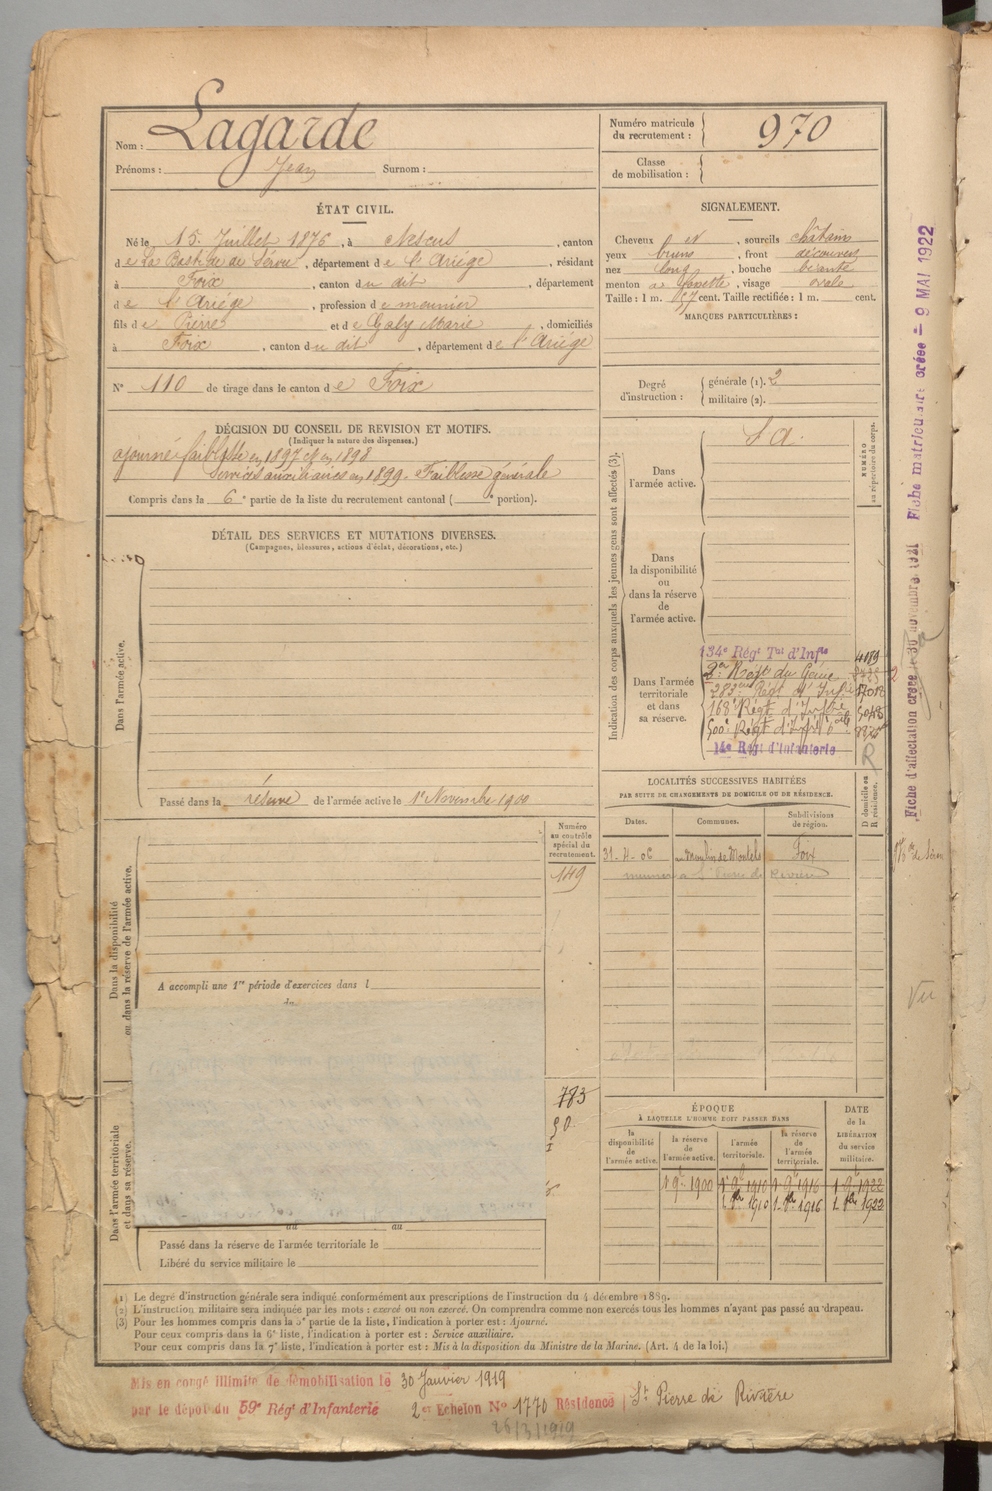 Nom : Lagarde
Prénoms : Jean Surnom :
Numéro matricule du recrutement : 970
Classe de mobilisation :
ÉTAT CIVIL.
Né le 15 Juillet 1876, à Nescus, canton
de La Bastide de Sérou, département de l'Ariège, résidant
à Foix, canton du dit, département
de l'Ariège, profession de meunier
fils de Pierre et de Gaby Marie, domiciliés
à Foix, canton du dit, département de l'Ariège
N° 110 de tirage dans le canton de Foix
SIGNALEMENT.
Cheveux et, sourcils châtains
yeux bruns, front découvert
nez long, bouche
menton à fossette, visage ovale
Taille : 1 m. 57 cent. Taille rectifiée : 1 m. cent.
MARQUES PARTICULIÈRES :
Degré d'instruction :
générale (1). 2
militaire (2).
DÉCISION DU CONSEIL DE REVISION ET MOTIFS.
(Indiquer la nature des dispenses.)
ajourné faiblesse en 1897 et en 1898
Services auxiliaires en 1899. Faiblesse générale
Compris dans la 6e partie de la liste du recrutement cantonal ( e portion).
DÉTAIL DES SERVICES ET MUTATIONS DIVERSES.
(Campagnes, blessures, actions d'éclat, décorations, etc.)
Dans l'armée active.
Passé dans la réserve de l'armée active le 1er Novembre 1900
Indication des corps auxquels les jeunes gens sont affectés (3).
NUMÉRO au répertoire du corps.
Dans l'armée active.
S. a.
Dans la disponibilité ou dans la réserve de l'armée active.
Dans l'armée territoriale et dans sa réserve.
134e Régt Tal d'Infie 4189
2e Régt du Génie
283eme Régt d'Infie
168e Régt d'Infie
500e Régt d'Infie
14e Régt d'Infanterie
LOCALITÉS SUCCESSIVES HABITÉES
PAR SUITE DE CHANGEMENTS DE DOMICILE OU DE RÉSIDENCE.
D domicile ou R résidence.
R
Dates. Communes. Subdivisions de région.
31-4-06 au Moulin de Montels Foix
Dans la disponibilité ou dans la réserve de l'armée active.
Numéro au contrôle spécial du recrutement.
149
A accompli une 1re période d'exercices dans l
du
783
Dans l'armée territoriale et dans sa réserve.
du au
Passé dans la réserve de l'armée territoriale le
Libéré du service militaire le
ÉPOQUE
À LAQUELLE L'HOMME DOIT PASSER DANS
DATE de la LIBÉRATION du service militaire.
la disponibilité de l'armée active.
la réserve de l'armée active.
l'armée territoriale.
la réserve de l'armée territoriale.
1er 9b 1900 1er 9b 1910 1er 9b 1916 1er 9b 1922
1. 8bre 1910 1. 8bre 1916 1. 8bre 1922
(1) Le degré d'instruction générale sera indiqué conformément aux prescriptions de l'instruction du 4 décembre 1889.
(2) L'instruction militaire sera indiquée par les mots : exercé ou non exercé. On comprendra comme non exercés tous les hommes n'ayant pas passé au drapeau.
(3) Pour les hommes compris dans la 5e partie de la liste, l'indication à porter est : Ajourné.
Pour ceux compris dans la 6e liste, l'indication à porter est : Service auxiliaire.
Pour ceux compris dans la 7e liste, l'indication à porter est : Mis à la disposition du Ministre de la Marine. (Art. 4 de la loi.)
Mis en congé illimité de démobilisation le 30 Janvier 1919
par le dépôt du 59e Régt d'Infanterie 2e Echelon N° 1770 Résidence St Pierre de Rivière
26/3/1919
Fiche d'affectation créée le 30 novembre 1921 Fiche matriculaire créée = 9 MAI 1922
Vu